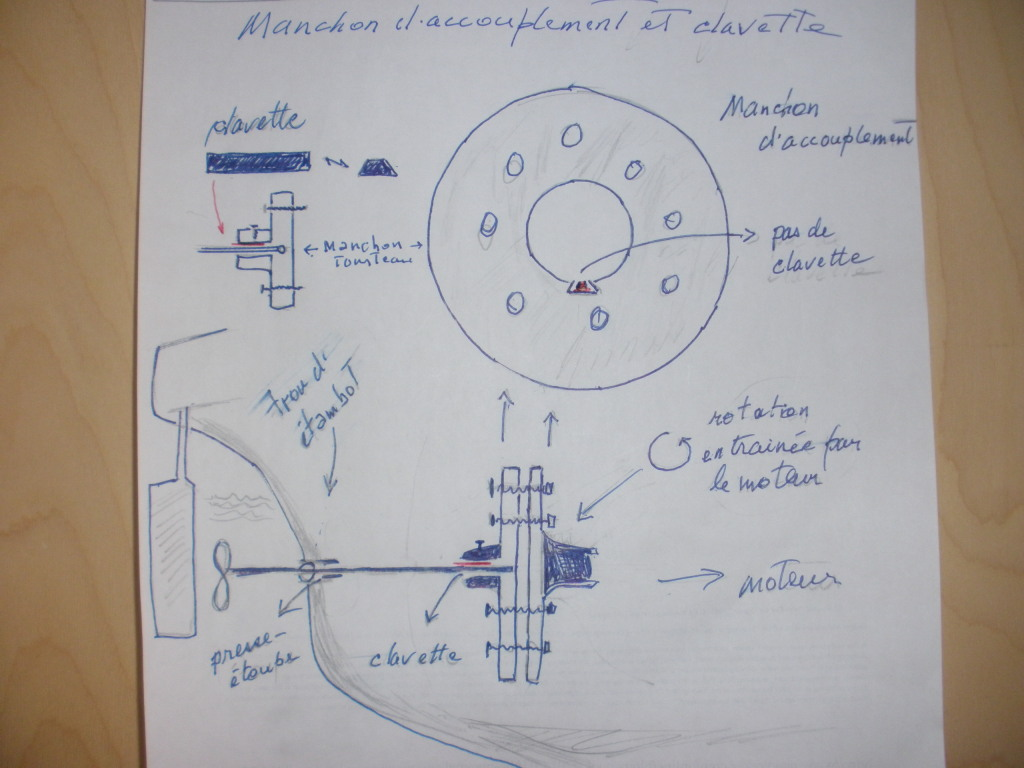 Manchon d'accouplement et clavette
clavette
Manchon
d'accouplement
Manchon
Tourteau
pas de
clavette
Trou d'
étambot
rotation
entrainée par
le moteur
moteur
presse-
étoupe
clavette